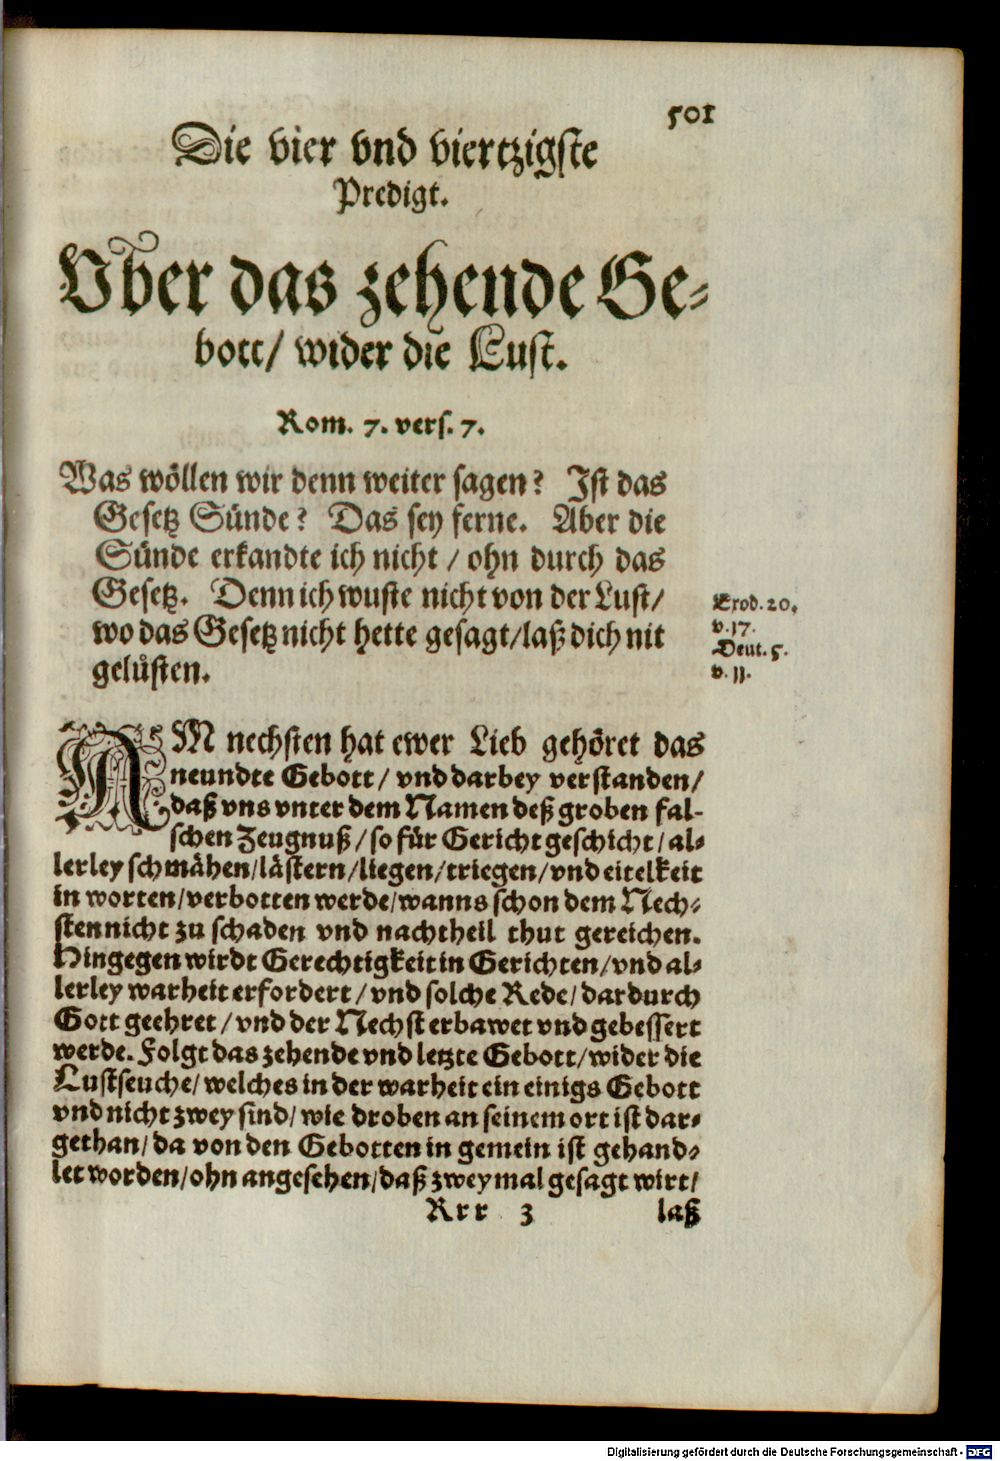 501
Die vier vnd viertzigste
Predigt.
Vber das zehende Ge-
bott/ wider die Lust.
Rom. 7. vers. 7.
Was wöllen wir denn weiter sagen? Ist das
Gesetz Sünde? Das sey ferne. Aber die
Sünde erkandte ich nicht / ohn durch das
Gesetz. Denn ich wuste nicht von der Lust/
wo das Gesetz nicht hette gesagt/laß dich nit
gelüsten.
Exod. 20.
v. 17.
Deut. 5.
v. 21.
AM nechsten hat ewer Lieb gehöret das
neundte Gebott/ vnd darbey verstanden/
daß vns vnter dem Namen deß groben fal-
schen Zeugnuß/so für Gericht geschicht/al-
lerley schmähen/lästern/liegen/triegen/vnd eitelkeit
in worten/verbotten werde/wanns schon dem Nech-
sten nicht zu schaden vnd nachtheil thut gereichen.
Hingegen wirdt Gerechtigkeit in Gerichten/vnd al-
lerley warheit erfordert/vnd solche Rede/dardurch
Gott geehret/vnd der Nechst erbawet vnd gebessert
werde. Folgt das zehende vnd letzte Gebott/wider die
Lustseuche/welches in der warheit ein einigs Gebott
vnd nicht zwey sind/wie droben an seinem ort ist dar-
gethan/da von den Gebotten in gemein ist gehand-
let worden/ohn angesehen/daß zweymal gesagt wirt/
Rrr 3 laß
Digitalisierung gefördert durch die Deutsche Forschungsgemeinschaft - DFG